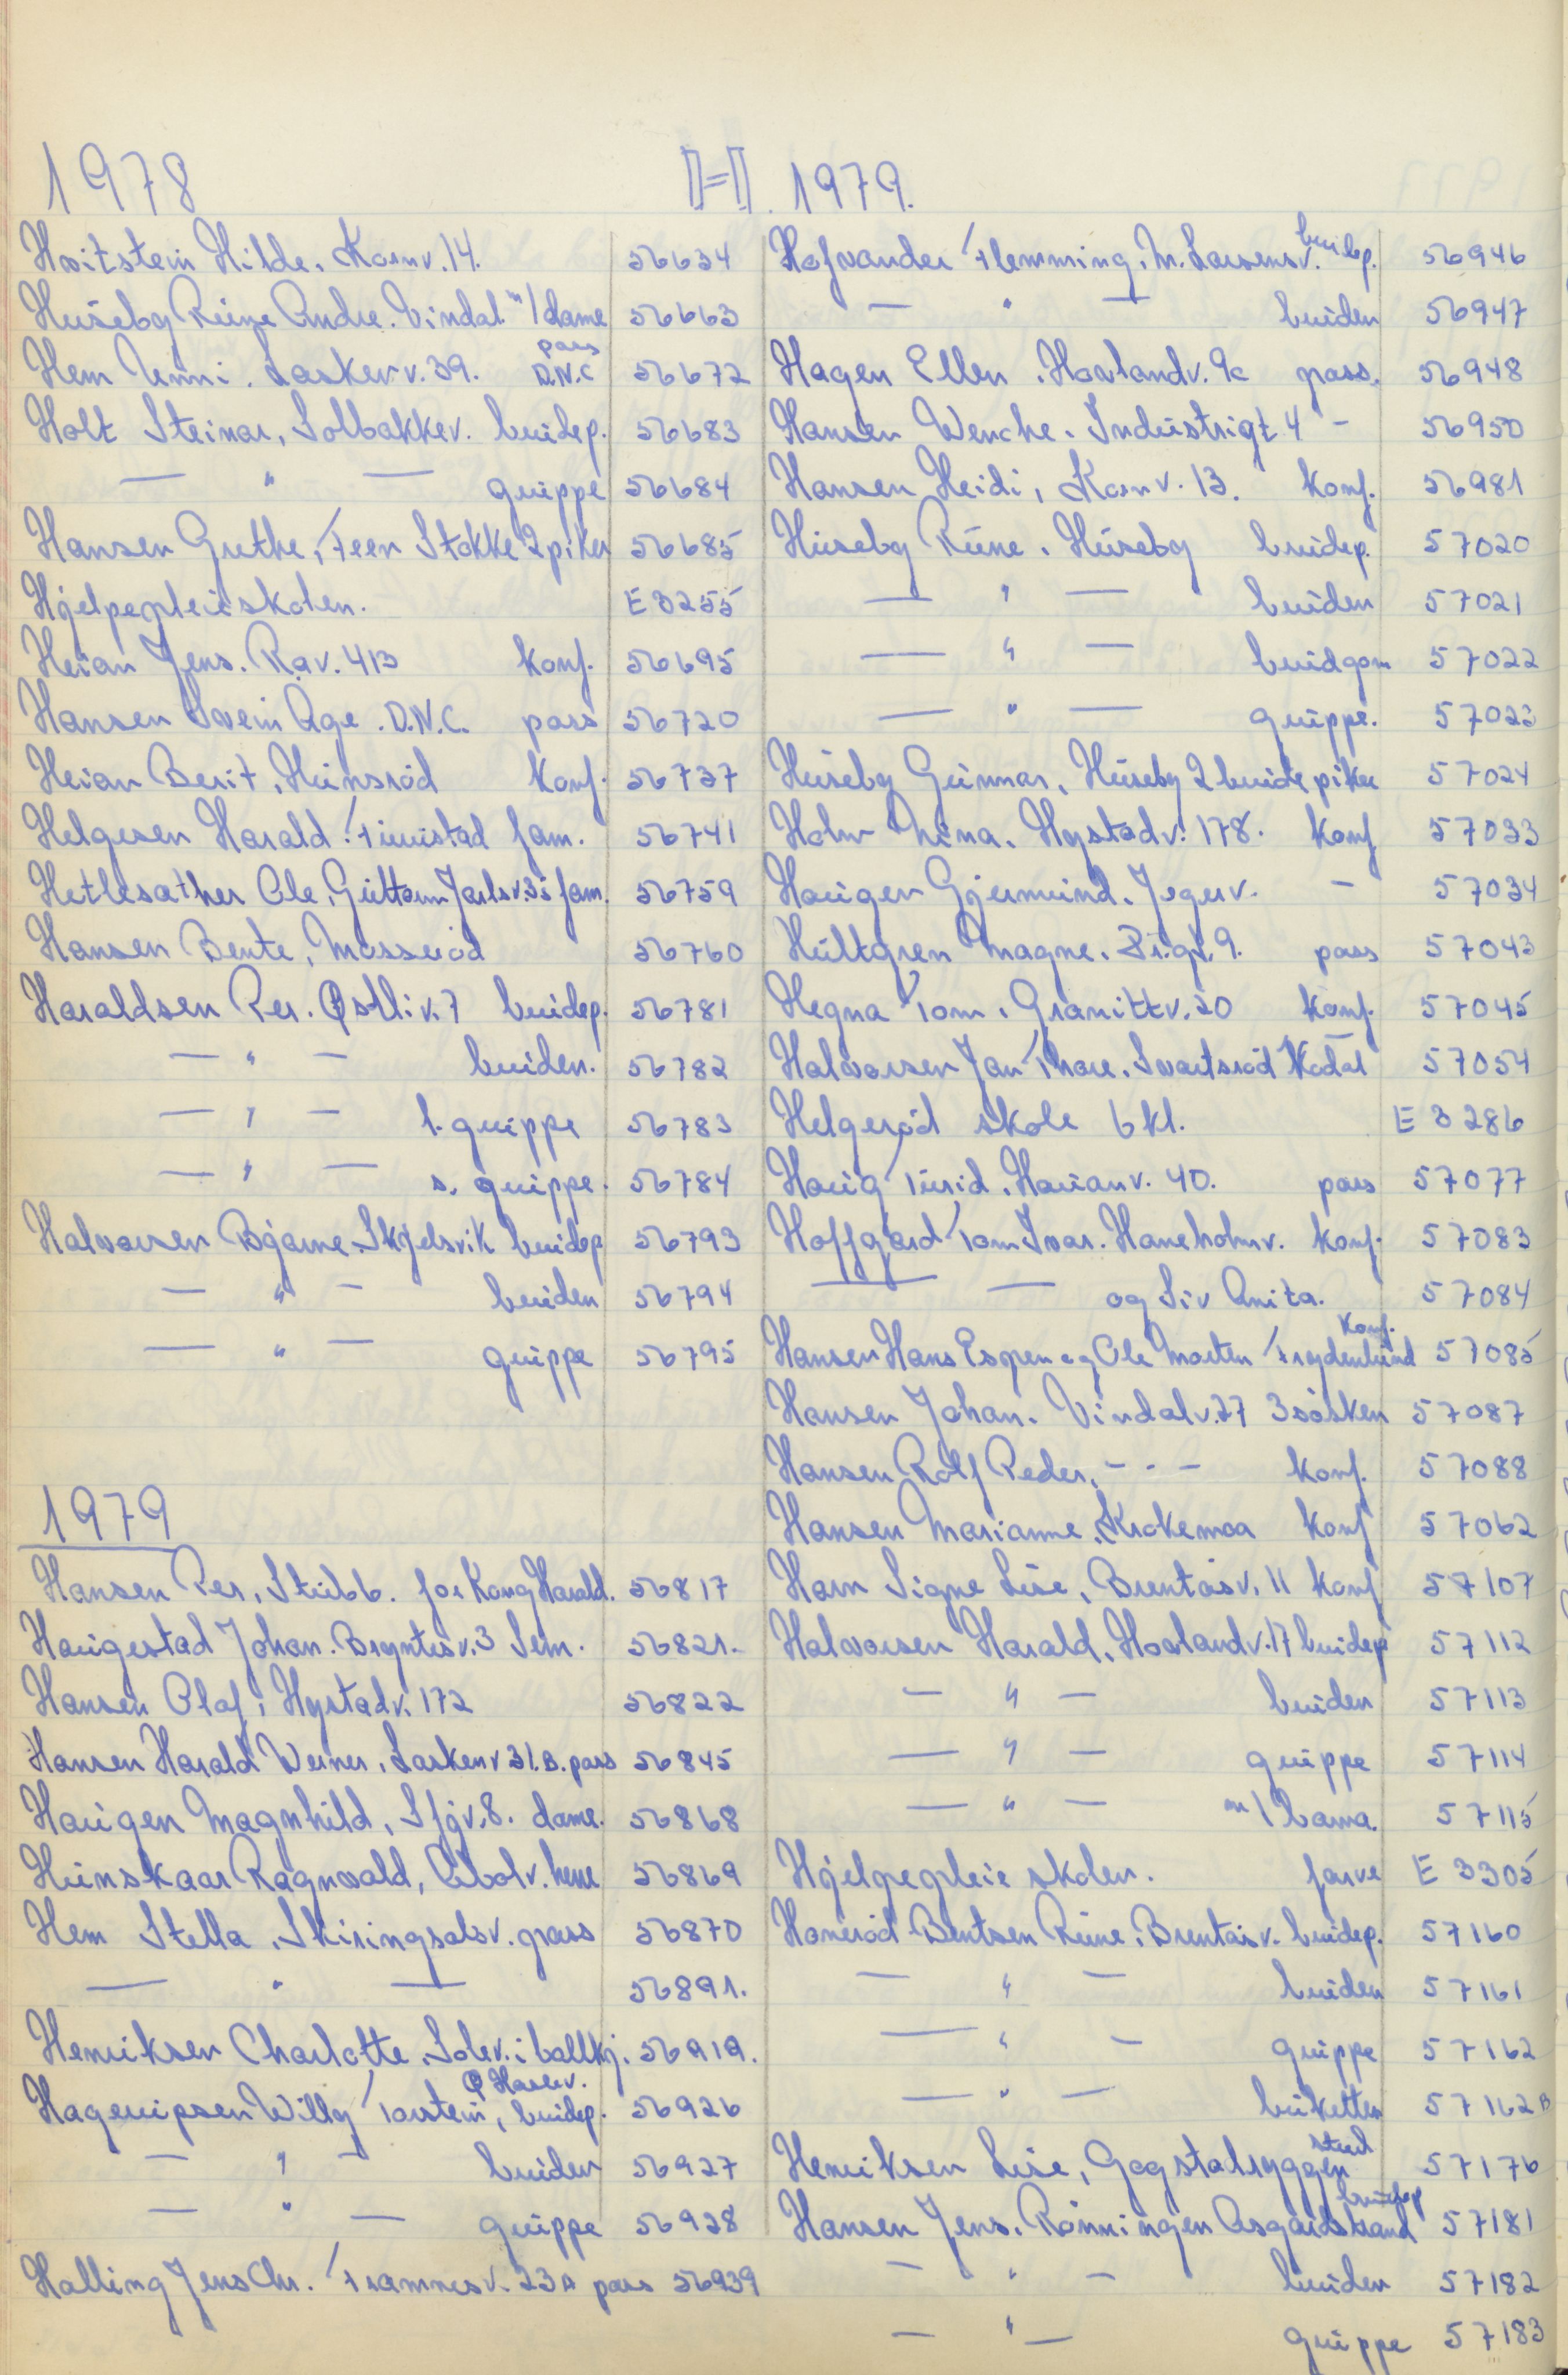 1978
Hvitstein Hilde. Kornv. 14. 56634
Huseby Rune Andre. Vindal. m/dame 56663
Hem Unni. Laskenv. 39. pass D.N.C 56672
Holt Steinar, Solbakkev. brudep. 56683
— " — gruppe 56684
Hansen Grethe, Feen Stokke 2 piker 56685
Hjelpepleieskolen. E 3255
Heian Jens. Rav. 413 konf. 56695
Hansen Svein Åge. D.N.C. pass 56720
Heian Berit, Hunsrød konf. 56737
Helgesen Harald. fam. 56741
Hetlesæther Ole, Guttorm Jarlsv. 35 fam. 56759
Hansen Bente, Mosserød 56760
Haraldsen Per. Østliv. 7 brudep. 56781
— " — bruden. 56782
— " — l. gruppe 56783
— " — s. gruppe. 56784
Halvorsen Bjarne. Skjelsvik brudep 56793
— " — bruden 56794
— " — gruppe 56795
1979
Hansen Per, Stubb. for Kong Harald. 56817
Haugestad Johan. Bryntesv. 3 Sem. 56821.
Hansen Olaf, Hystadv. 172 56822
Hansen Harald Werner, Laskenv 31.B. pass 56845
Haugen Magnhild, Sfjv. 8. dame. 56868
Hunskaar Ragnvald, herre 56869
Hem Stella, Skiringsalsv. pass 56870
— " — 56891.
Henriksen Charlotte, Solev. i ballkj. 56919.
Ø Halsv.
Hagerupsen Willy Torstein, brudep. 56926
— " — bruden 56927
— " — gruppe 56928
Halling Jens Chr. Framnesv. 23A pass 56939
H. 1979.
Hofvander Flemming, N. Larsensv. brudep. 56946
— " — bruden 56947
Hagen Ellen. Hovlandv. 9c pass. 56948
Hansen Wenche. Industrigt. 4 - 56950
Hansen Heidi, Kornv. 13. konf. 56981
Huseby Rune. Huseby brudep. 57020
— " — bruden 57021
— " — brudgom 57022
— " — gruppe. 57023
Huseby Gunnar, Huseby 2 brude piker 57024
Holm Nina. Hystadv. 178. konf 57033
Haugen Gjermund. Jegerv. - 57034
Hultgren Magne. 9. pass 57043
Hegna Tom. Granittv. 20 konf. 57045
Halvorsen Jan Thore. Svartsrød Kodal 57054
Helgerød skole 6 kl. E 3286
Haug Turid. Hauanv. 40. pass 57077
Hoffgård Tom Ivar. Haneholmv. konf. 57083
— — og Siv Anita. 57084
Hansen Hans Espen og Ole Morten Frydenlund konf. 57085
Hansen Johan. Vindalv. 77 3 søsken 57087
Hansen Rolf Peder. - " - konf. 57088
Hansen Marianne, Krokemoa konf 57062
Ham Signe Lise, Brentåsv. 11 konf 57107
Halvorsen Harald, Hovlandv. 17 brudep 57112
— " — bruden 57113
— " — gruppe 57114
— " — m/barna. 57115
Hjelpepleie skolen. farve E 3305
Hanerød Bentsen Rune, Brentåsv. brudep. 57160
— " — bruden 57161
— " — gruppe 57162
— " — buketten 57162 B
Henriksen Lise, Gogstadryggen stud 57176
Hansen Jens. Rønningen Åsgårdstrand brudep 57181
— " — bruden 57182
— " — gruppe 57183